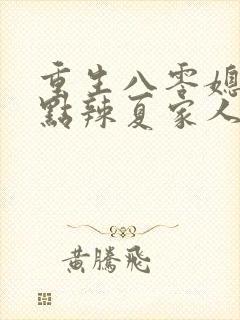 重生八零媳
點辣夏家人
黃騰飛